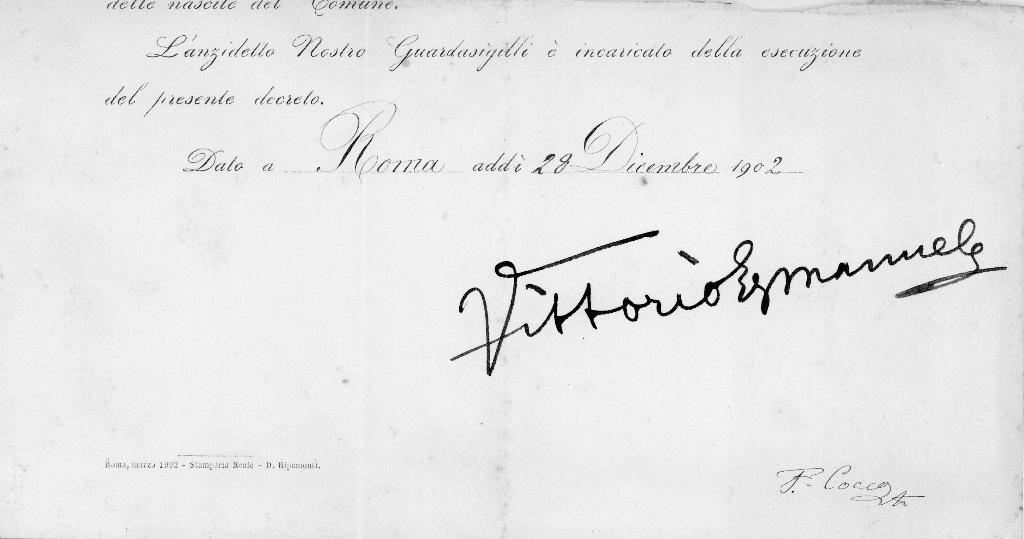 delle nascite del Comune.
L'anzidetto Nostro Guardasigilli è incaricato della esecuzione
del presente decreto.
Dato a Roma addì 28 Dicembre 1902
Vittorio Emanuele
Roma, marzo 1902 - Stamperia Reale - D. Ripamonti.
F. Cocco